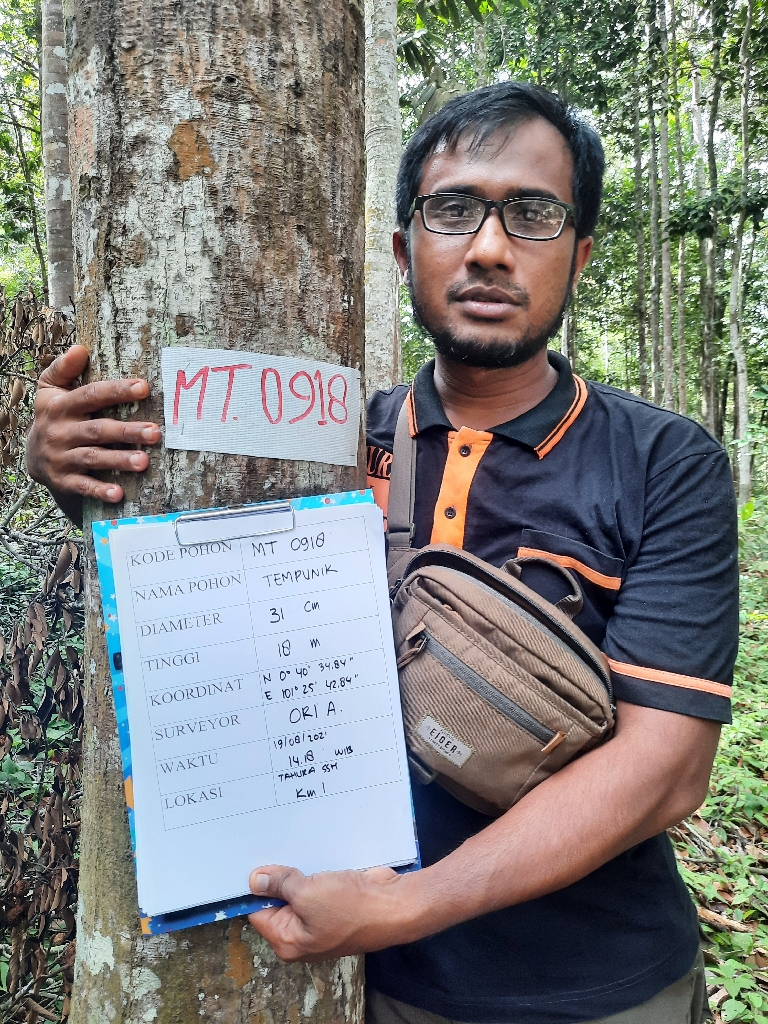 MT. 0918
KODE POHON MT 0918
NAMA POHON TEMPUNIK
DIAMETER 31 cm
TINGGI 18 m
KOORDINAT N 0° 40' 34.84"
E 101° 25' 42.84"
SURVEYOR ORI A.
WAKTU 19/08/2021
14.18 WIB
LOKASI TAHURA SSH
Km 1
EIGER